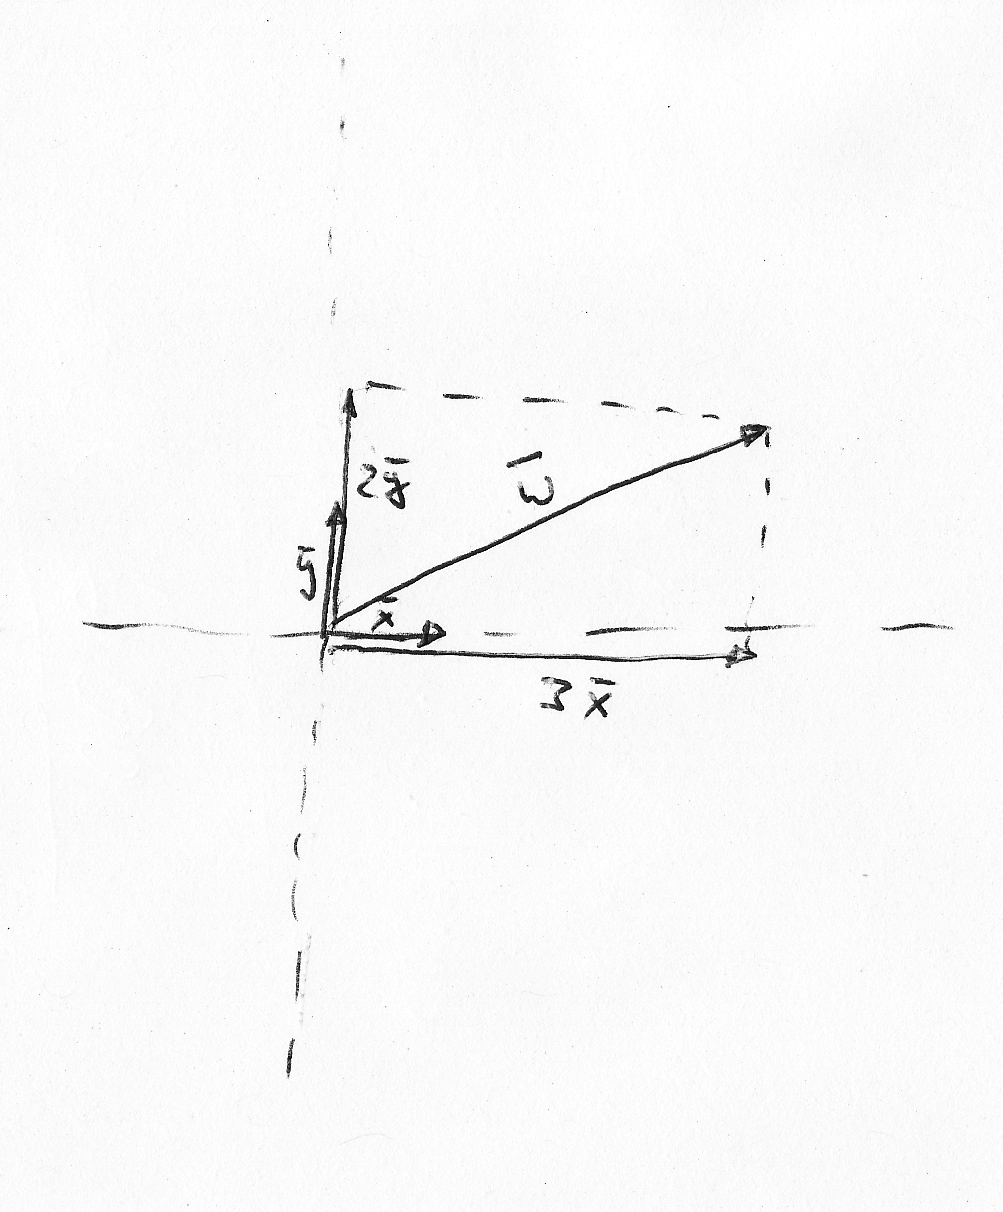 2y̅
w̅
y̅
x̅
3x̅